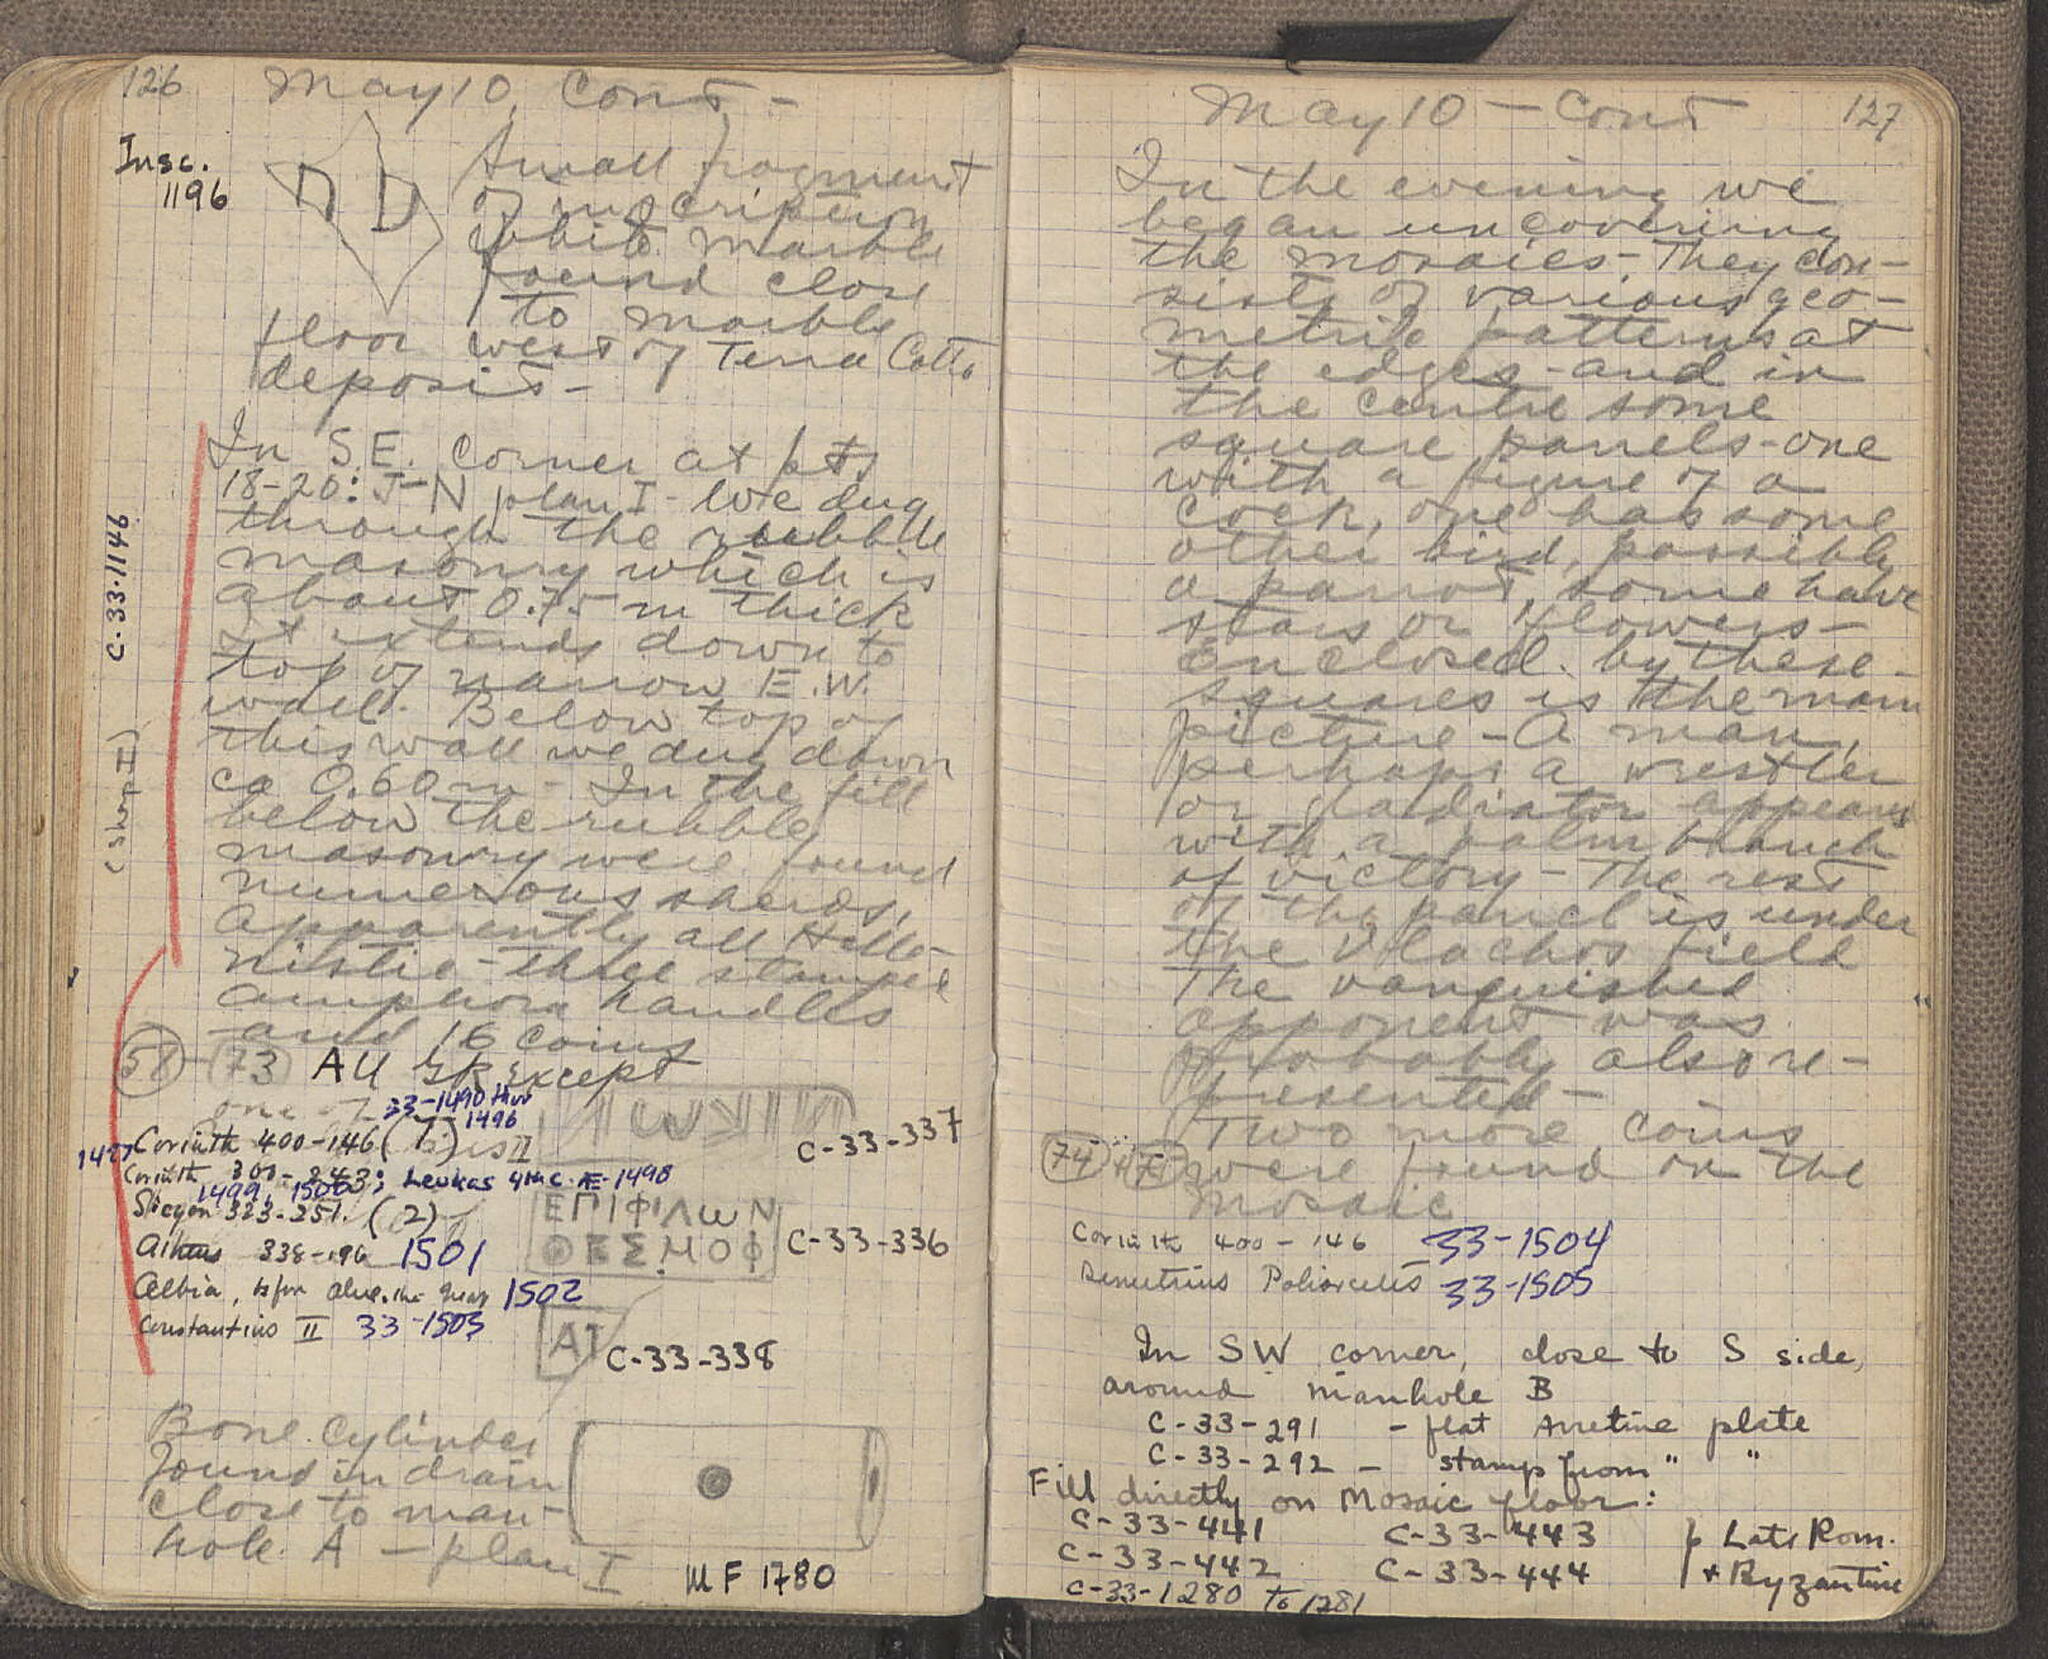 126
May 10, Cont -
Insc.
1196
Small fragment
of inscription
white marble
found close
to marble
floor west of Terra Cotta
deposit -
In S.E. corner at pts
18-20: J-N plan I - We dug
through the rubble
masonry which is
about 0.75 m thick
It extends down to
top of narrow E.W.
wall. Below top of
this wall we dug down
ca 0.60 m - In the fill
below the rubble
masonry were found
numerous sherds,
apparently all Helle-
nistic - three stamped
amphora handles
and 16 coins
58 - 73 All GR Except
one of
33-1490 thru
1496
Corinth 400-146 (7)
1497
Corinth 300-243; Leukas 4th c. Æ-1498
1499, 1500
Sicyon 323-251. (2)
Athens 338-196 1501
1502
Constantius II 33-1503
C-33-337
ΕΠΙΦΙΛΩΝ
ΘΕΣΜΟΦ
C-33-336
ΑΤ
C-33-338
Bone cylinder
found in drain
close to man-
hole A - plan I
MF 1780
C-33-1146
(Shop II)
127
May 10 - Cont
In the evening we
began uncovering
the mosaics. They con-
sists of various geo-
metric patterns at
the edges - and in
the centre some
square panels - one
with a figure of a
cock, one has some
other bird, possibly
a parrot, some have
stars or flowers -
Enclosed by these
squares is the main
picture - A man,
perhaps a wrestler
or gladiator appears
with a palm branch
of victory - The rest
of the panel is under
the Vlachos field
The vanquished
opponent was
probably also re-
presented -
Two more coins
74 + 75 were found on the
mosaic
Corinth 400-146 33-1504
Demetrius Poliorcetes 33-1505
In SW corner, close to S side,
around manhole B
C-33-291 - flat Arretine plate
C-33-292 - stamp from " "
Fill directly on Mosaic floor:
C-33-441 C-33-443 Late Rom.
C-33-442 C-33-444 + Byzantine
C-33-1280 to 1281